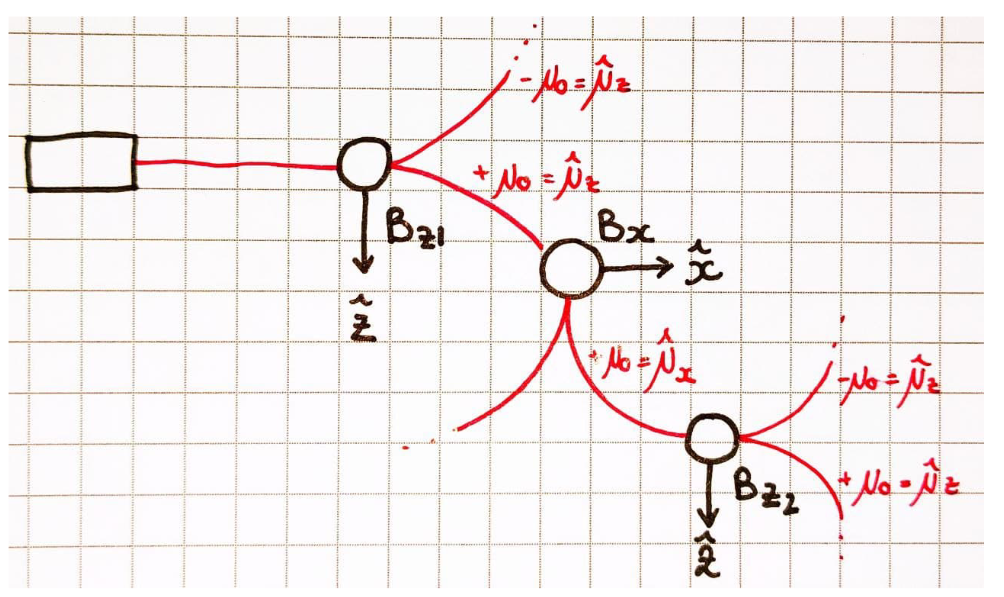 - μ₀ = μ̂z
+ μ₀ = μ̂z
Bz1
ẑ
Bx
x̂
+ μ₀ = μ̂x
- μ₀ = μ̂z
+ μ₀ = μ̂z
Bz2
ẑ